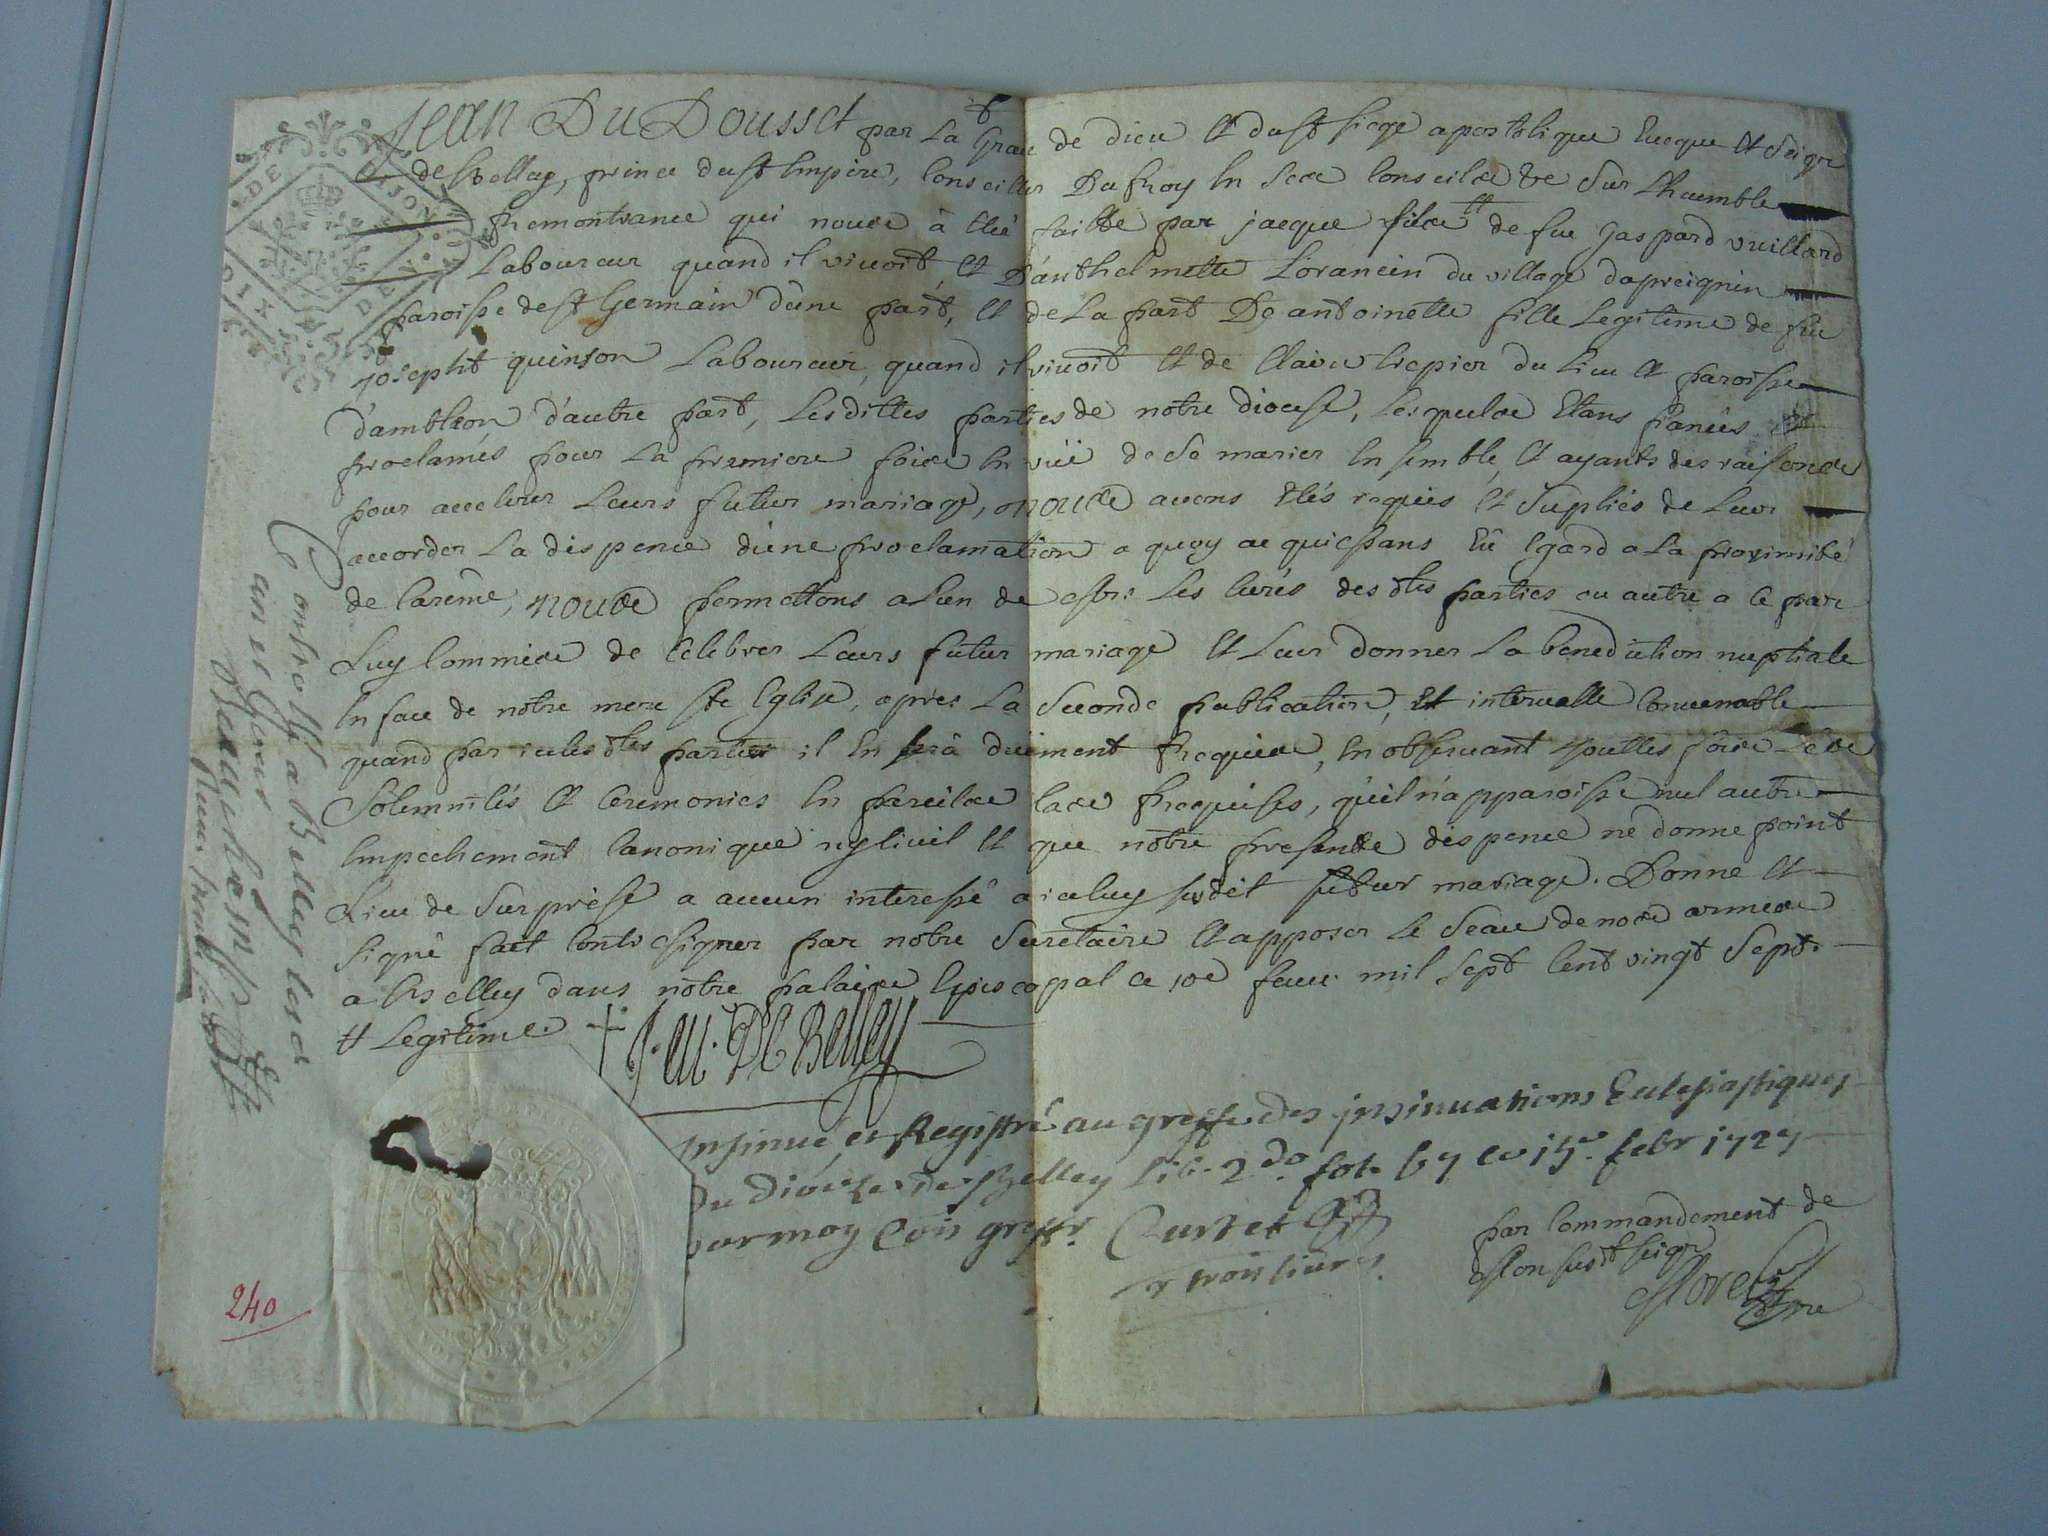 Jean Du Dousset par La Grace de dieu et du st siege apostolique Eveque et Seigr
de Belley, prince du st Empire, Conseiller Du Roy En ses Conseils &c Sur L'humble
Remontrance qui nous à été faitte par jacque fils tt de feu Gaspard vuillard
Laboureur quand il vivoit, et D'anthelmette du village dapreignin
paroisse de st Germain d'une part, et de La part De antoinette fille Legitime de feu
josepht quinson Laboureur, quand il vivoit et de Claire du Lieu et paroisse
d'ambleon d'autre part, Lesdittes parties de notre diocese, Lesquels Etans fiancés et
proclamés pour La premiere fois En vüe de Se marier Ensemble, et ayants des raisons
pour accelerer Leurs futur mariage, nous avons Etés requis et Supliés de Leur
accorder La dispence d'une proclamation a quoy acquiessans Eû Egard a La proximité
de Carême, nous permettons a L'un de Les Curés des dtes parties ou autre a ce par
Luy Commis de Celebrer Leurs futur mariage et Leur donner La benediction nuptiale
En face de notre mere ste Eglise, apres La Seconde publication, Et intervalle Convenable
quand par icelles dtes parties il En serà duëment Requis, En observant touttes fois Les
Solemnités et Ceremonies En pareils Cas Requises, qu'il n'apparoisse nul autre
Empechement Canonique ny Civil et que notre presente dispence ne donne point
Lieu de Surprise a aucun interessé a iceluy susdit futur mariage. Donné et
Signé fait Contresigner par notre Secretaire et apposer Le Seau de nos armes
a Belley dans notre palais Episcopal ce 10e fevr. mil Sept Cent vingt Sept.
tt Legitime. † J. Ev. De Belley
Insinué et Registré au greffe des insinuations Eclesiastiques
Du Diocese de Belley Lib. 2do. fol. 67 ce 15e. febr 1727
par moy Com greffr. Curtet
trois livres.
par Commandement de
mon susdt seigr
Morel
240
Controllé a Belley les
cinq
Beauchos